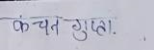 कंचन गुप्ता.